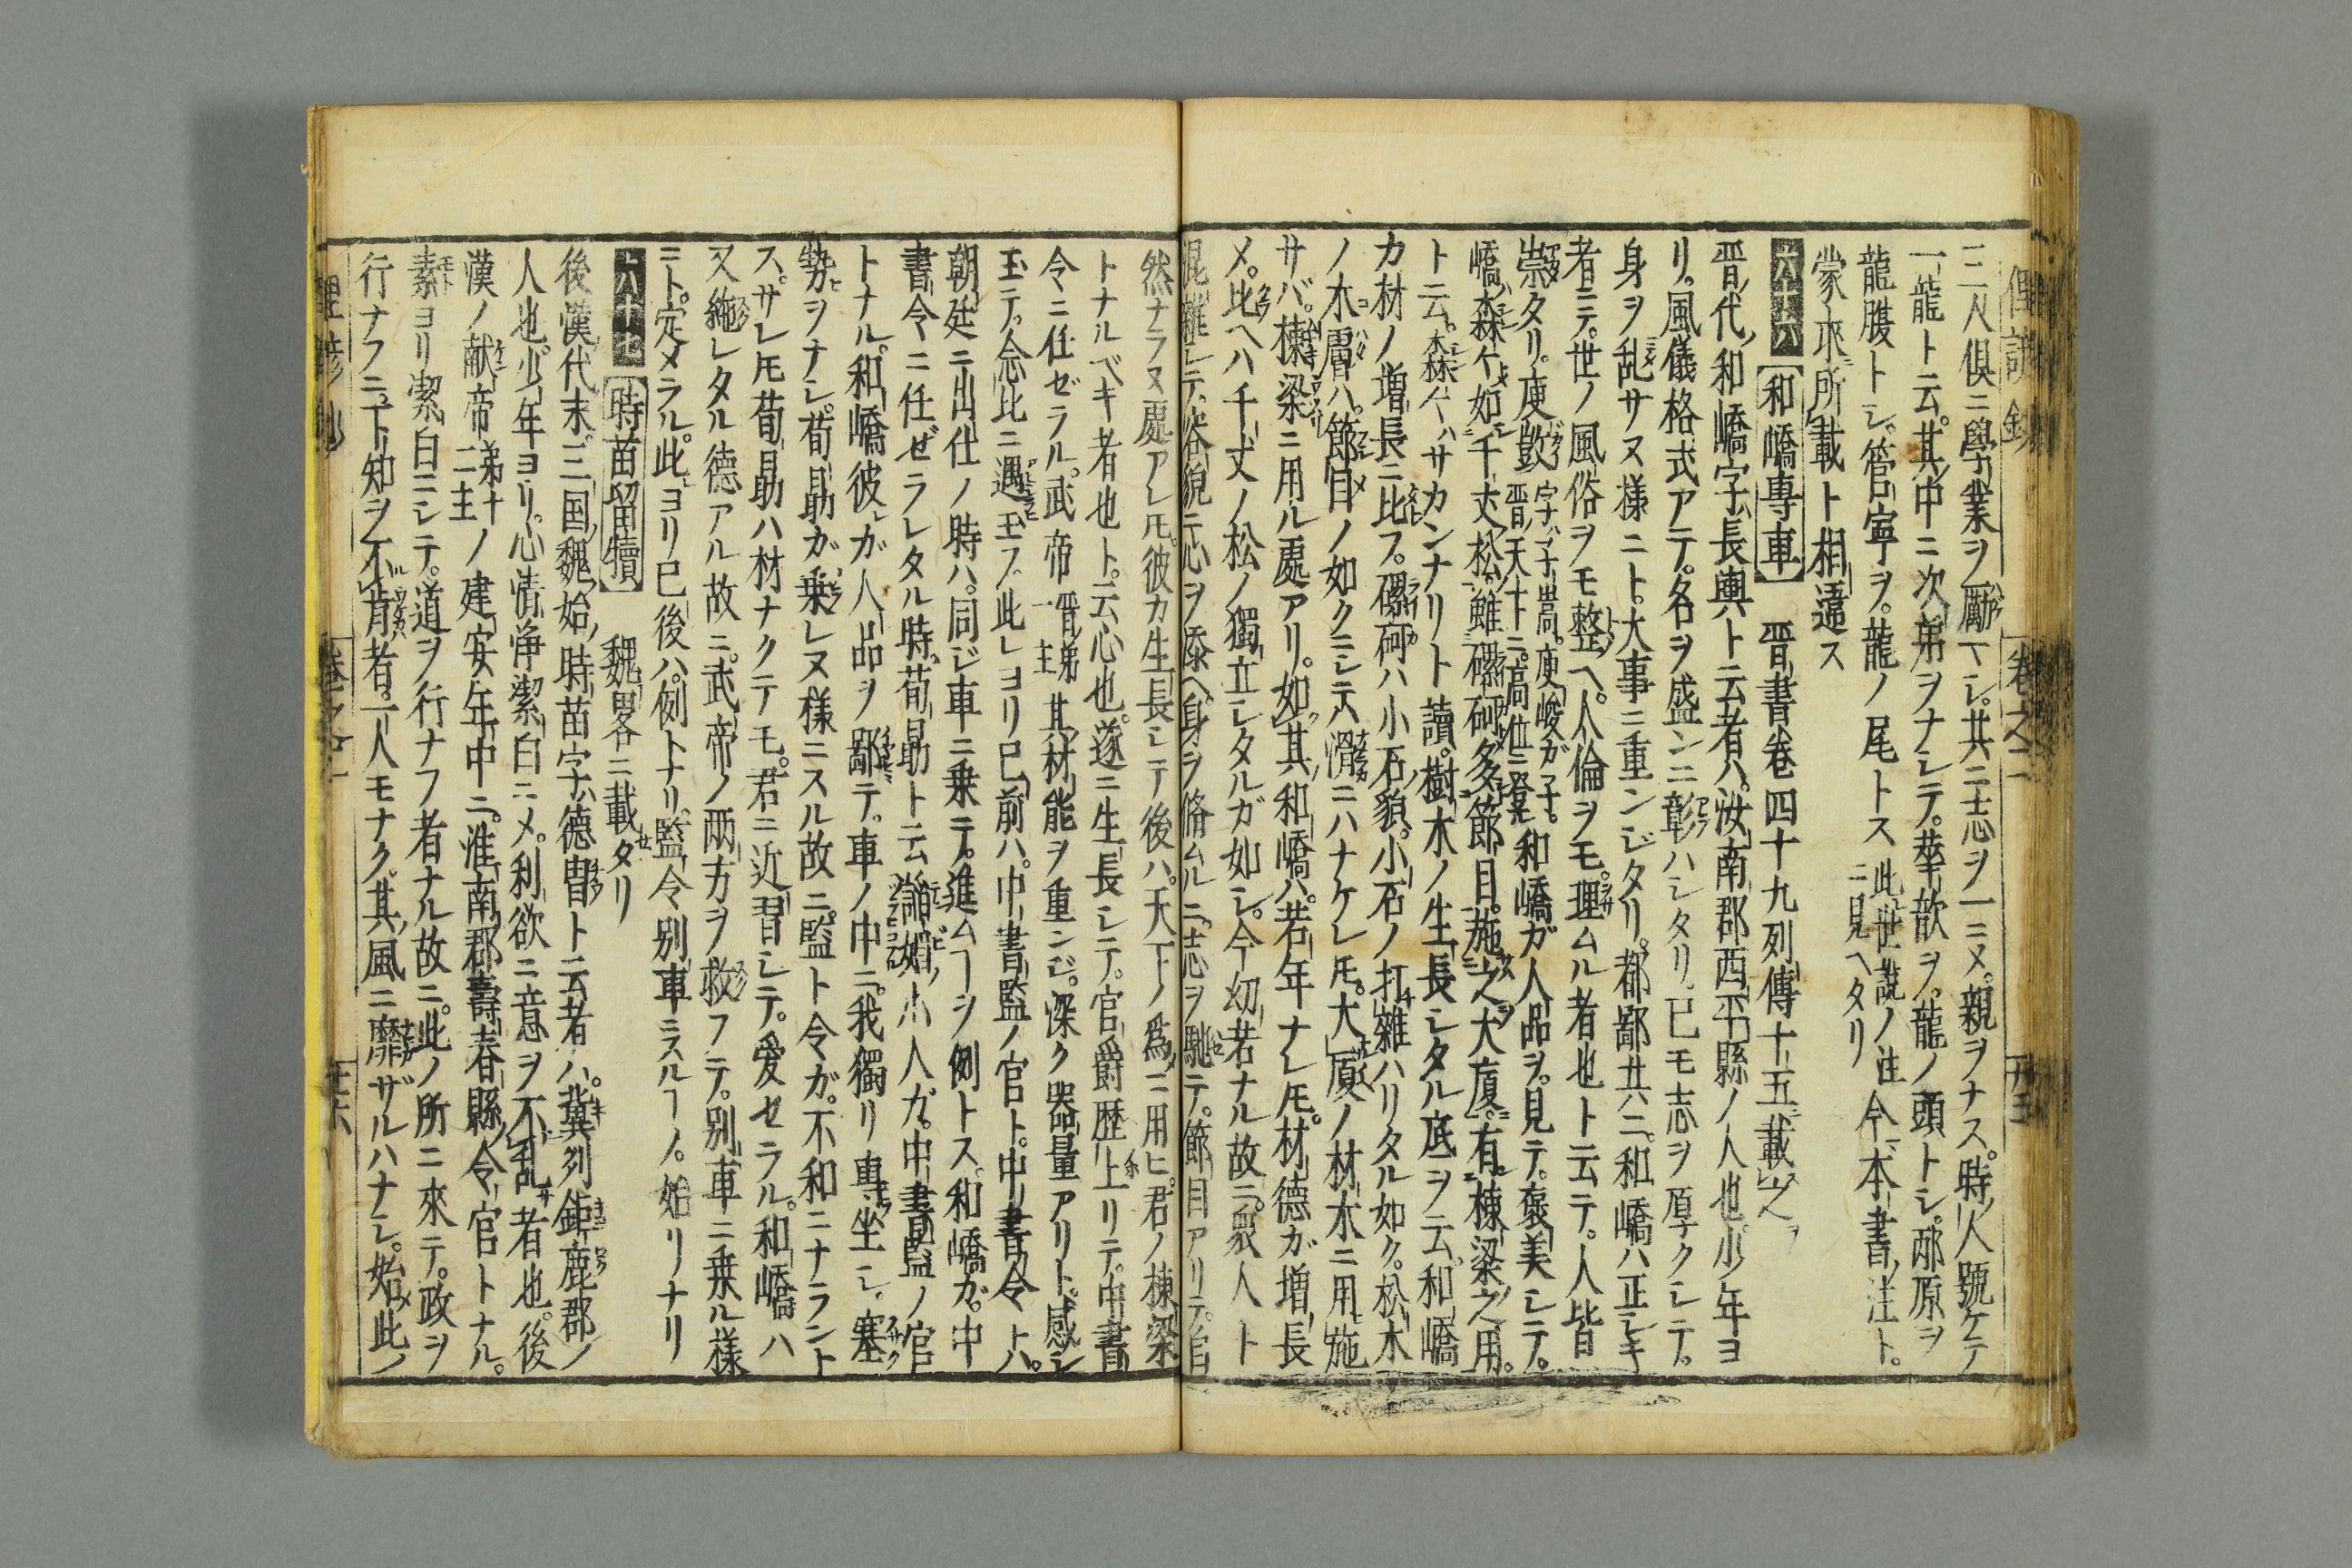 俚諺鈔 卷之二 廿五
三人俱ニ學業ヲ勵マシ。共ニ志ヲ一ニメ。親ヲナス。時ノ人號ケテ
一龍ト云。其ノ中ニ次第ヲナシテ。華歆ヲ。龍ノ頭トシ。邴原ヲ
龍腹トシ。管寧ヲ。龍ノ尾トス 此世說ノ注ニ見ヘタリ 今本書ノ注ト。
蒙求ニ所載ト相違ス
六十六 和嶠專車 晋書卷四十九列傳十五載之
晋ノ代。和嶠字ハ長輿ト云者ハ。汝南郡西平縣ノ人也。少年ヨ
リ。風儀格式アテ。名ヲ盛ンニ彰ハシタリ。已モ志ヲ厚クシテ。
身ヲ乱サヌ様ニト。大事ニ重ンジタリ。都鄙共ニ。和嶠ハ正シキ
者ニテ。世ノ風俗ヲモ整ヘ。人倫ヲモ。理ムル者也ト云テ。人皆
崇タリ。庾敳 字ハ子嵩。庾峻ガ子。晋ノ天下ニ。高位ニ登ル 和嶠ガ人品ヲ。見テ。褒美シテ。
嶠森々如千丈松。雖磥砢多節目。施之大廈。有棟梁之用。
ト云。森々ハサカンナリト讀。樹木ノ生長シタル底ヲ云。和嶠
カ材ノ増長ニ比フ。磥砢ハ小石ノ貌。小石ノ打雜ハリタル如ク。松木
ノ木膚ハ。節目ノ如クニシテ滑ニハナケレ𪜈。大厦ノ材木ニ用施
サバ。棟梁ニ用ル處アリ。如其和嶠ハ。若年ナレ𪜈。材德ガ増長
メ。比ヘハ千丈ノ松ノ獨立シタルガ如シ。今幼若ナル故ニ。衆人ト
混雜シテ。容貌ニ心ヲ添ヘ。身ヲ脩ムルニ。志ヲ馳テ。節目アリテ。
然ナラヌ處アレ𪜈。彼カ生長シテ後ハ。天下ノ爲ニ用ヒ。君ノ棟梁
トナルベキ者也ト。云心也。遂ニ生長シテ。官爵歴上リテ。中書
令ニ任ゼラル。武帝 晋ノ第一主 其材能ヲ重ンジ。深ク器量アリト。感シ
玉テ。念此ニ遇玉フ。此レヨリ已前ハ。中書監ノ官ト。中書令トハ。
朝廷ニ出仕ノ時ハ。同ジ車ニ乗テ。進ムヿヲ例トス。和嶠ガ。中
書令ニ任ゼラレタル時。荀勗ト云諂媚ノ小人ガ。中書監ノ官
トナル。和嶠彼レガ人品ヲ鄙テ。車ノ中ニ。我獨リ專坐シ。塞ク
勢ヲナシ。荀勗ガ乗レヌ様ニスル故ニ。監ト令ガ。不和ニナラント
ス。サレ𪜈荀勗ハ材ナクテモ。君ニ近習シテ。愛セラル。和嶠ハ
又絁レタル德アル故ニ。武帝ノ兩方ヲ救フテ。別車ニ乗ル様
ニト。定メラル。此ヨリ已後ハ。例トナリ。監令別車ニスルヿノ。始リナリ
六十七 時苗留犢 魏畧ニ載タリ
後漢代末。三国ノ魏ノ始。時苗字ハ德冑ト云者ハ。冀列鉅鹿郡ノ
人也。少年ヨリ。心清浄潔白ニメ。利欲ニ意ヲ不乱者也。後
漢ノ献帝 第十二主 ノ建安年中ニ。淮南郡壽春縣ノ令ノ官トナル。
素ヨリ潔白ニシテ。道ヲ行ナフ者ナル故ニ。此ノ所ニ來テ。政ヲ
行ナフニ。下知ヲ不肯者。一人モナク。其ノ風ニ靡ザルハナシ。始メ此ノ
俚諺鈔 卷之二 廿六